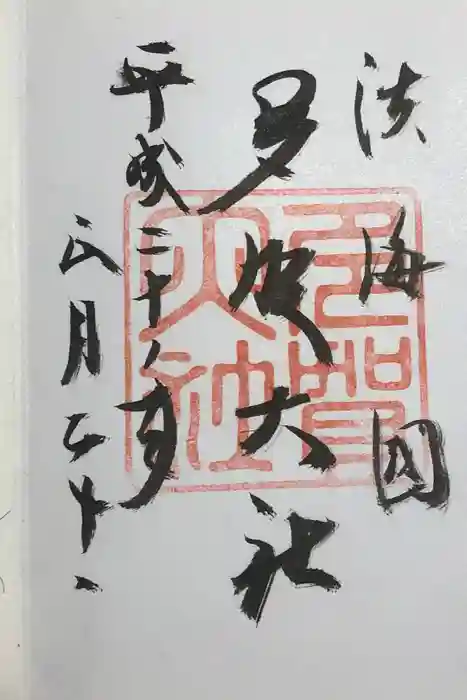 淡海国
多賀大社
平成二十八年
正月二十一
多賀
大社